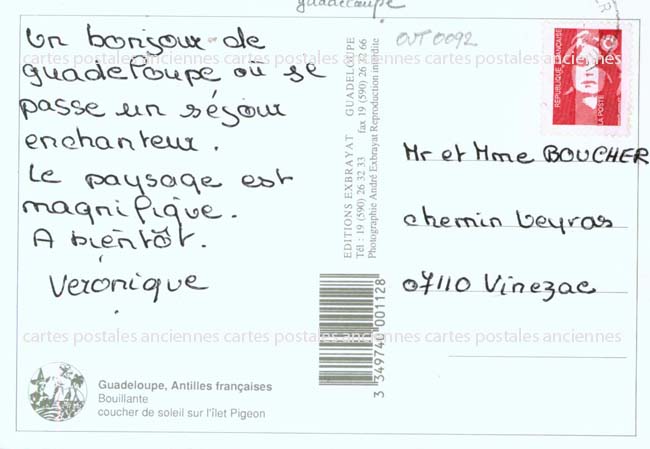 guadeloupe
OUT0092
Un bonjour de
guadeloupe ou se
passe un séjour
enchanteur.
Le paysage est
magnifique.
A bientôt.
Véronique
EDITIONS EXBRAYAT GUADELOUPE
Tél : 19 (590) 26 32 33 fax 19 (590) 26 32 66
Photographie André Exbrayat Reproduction interdite
3 349740 001128
REPUBLIQUE FRANÇAISE
LA POSTE
Mr et Mme BOUCHER
chemin Veyras
07110 Vinezac
cartes postales anciennes cartes postales anciennes cartes postales anciennes
cartes postales anciennes cartes postales anciennes cartes postales anciennes
Guadeloupe, Antilles françaises
Bouillante
coucher de soleil sur l'îlet Pigeon